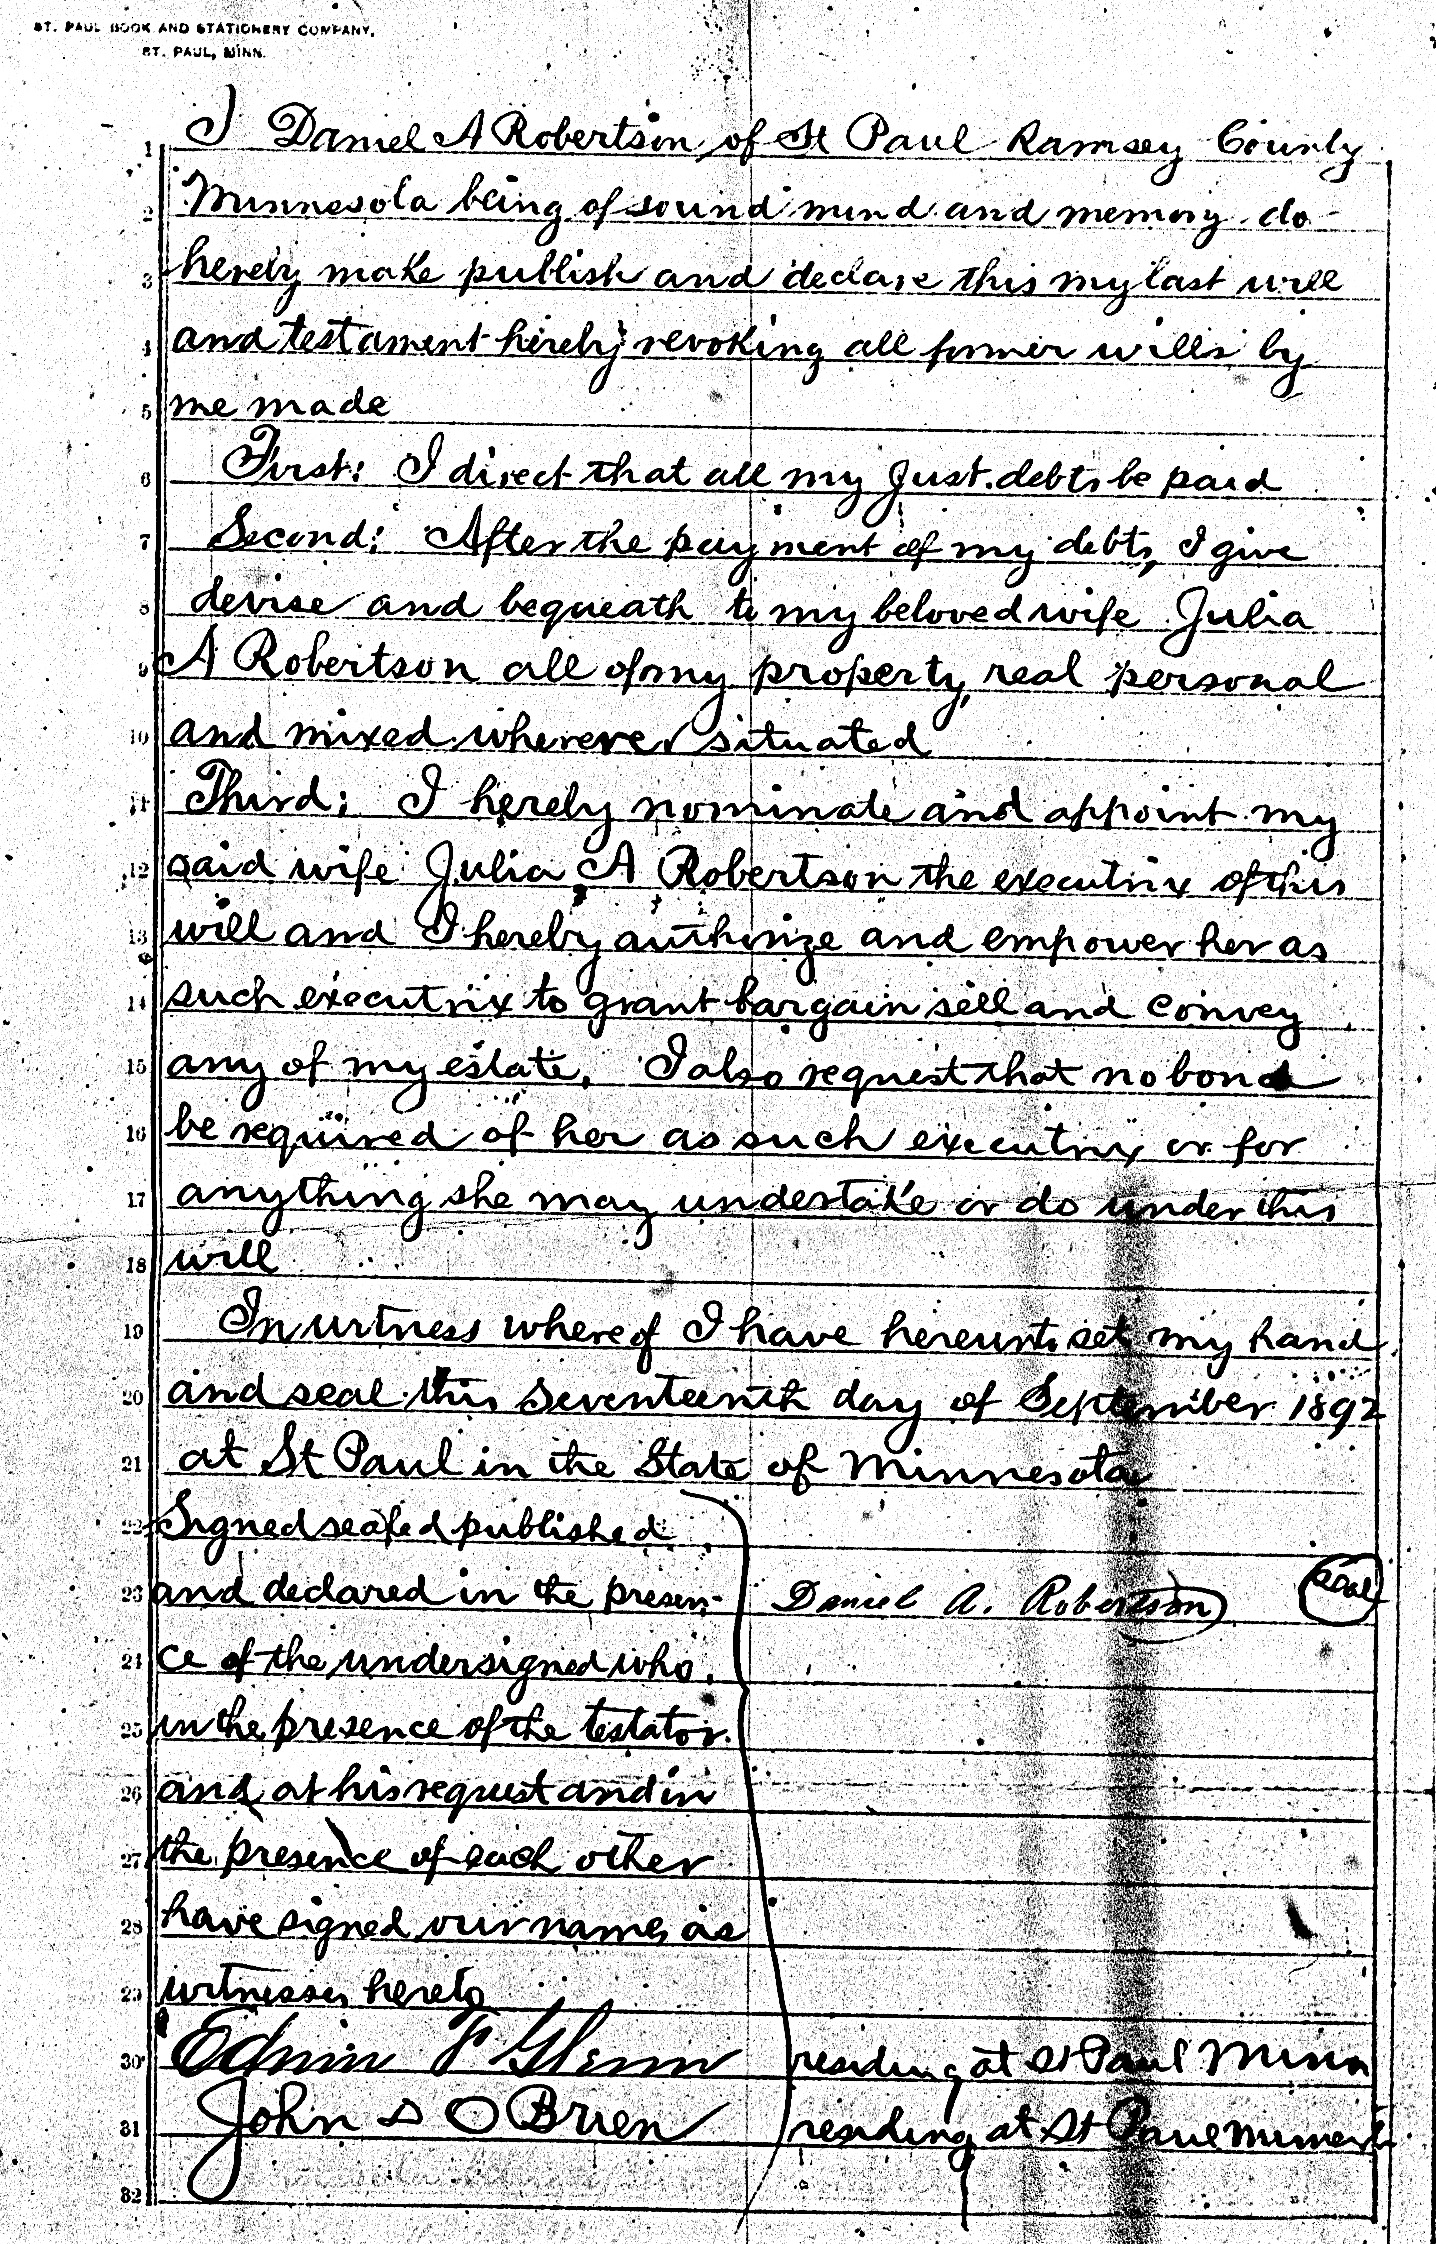 ST. PAUL BOOK AND STATIONERY COMPANY,
ST. PAUL, MINN.
1 I Daniel A Robertson of St Paul Ramsey County
2 Minnesota being of sound mind and memory do
3 hereby make publish and declare this my last will
4 and testament hereby revoking all former wills by
5 me made
6 First: I direct that all my just debts be paid
7 Second: After the payment of my debts, I give
8 devise and bequeath to my beloved wife Julia
9 A Robertson all of my property, real personal
10 and mixed wherever situated
11 Third; I hereby nominate and appoint my
12 said wife Julia A Robertson the executrix of this
13 will and I hereby authorize and empower her as
14 such executrix to grant bargain sell and convey
15 any of my estate. I also request that no bond
16 be required of her as such executrix or for
17 anything she may undertake or do under this
18 will
19 In witness whereof I have hereunto set my hand
20 and seal this seventeenth day of September 1892
21 at St Paul in the State of Minnesota
22 Signed sealed published
23 and declared in the presen- Daniel A. Robertson seal
24 ce of the undersigned who
25 in the presence of the testator
26 and at his request and in
27 the presence of each other
28 have signed our names as
29 witnesses hereto
30 Edwin F Glenn residing at St Paul Minn
31 John D O'Brien residing at St Paul
32